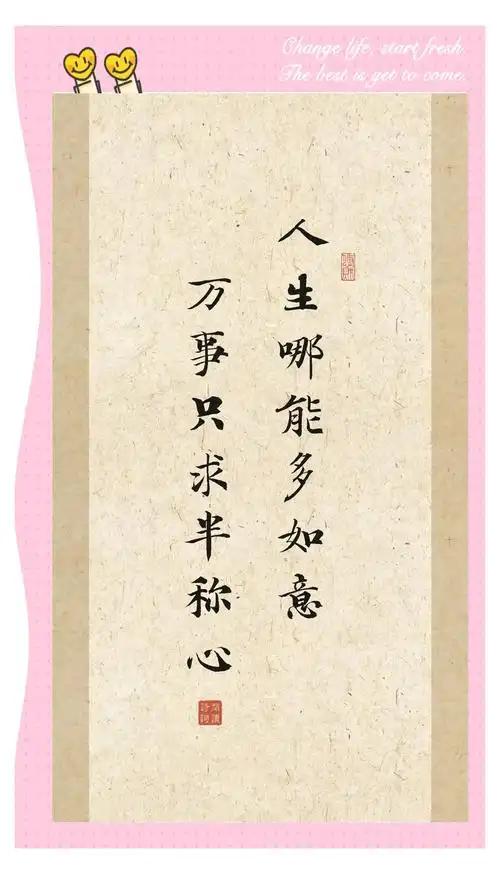 Change life, start fresh.
The best is yet to come.
人生哪能多如意
万事只求半称心